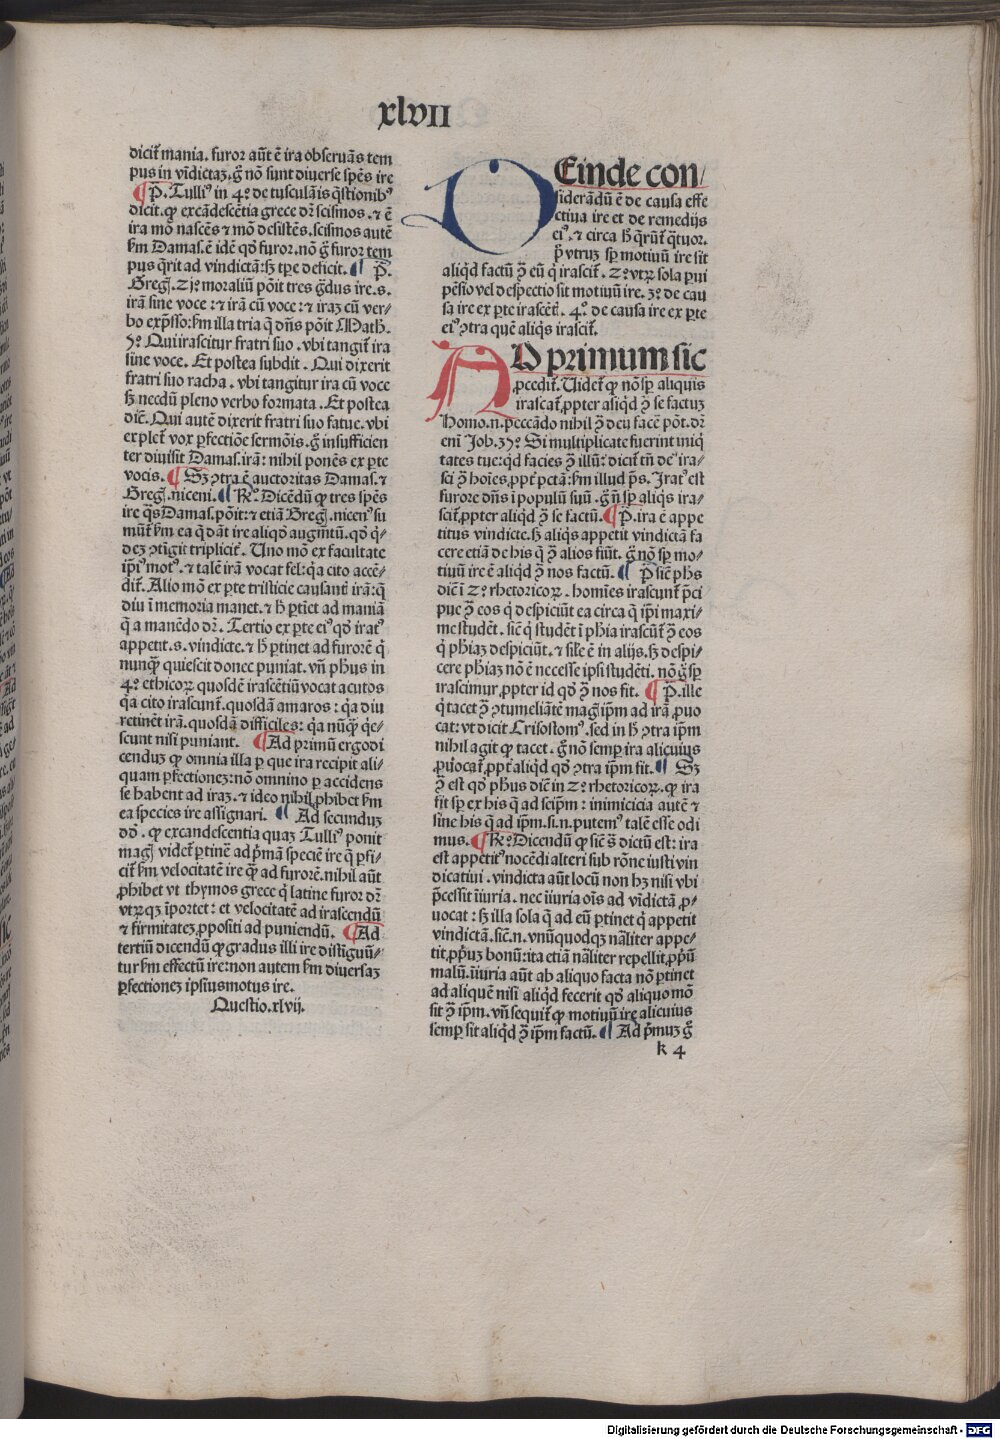 xlvII
dicit̃ mania. furor aũt ẽ ira obseruãs tem
pus in vĩdictaꝫ. g̊ nõ sunt diuerse spẽs ire
¶ P̃. Tulliꝰ in 4º de tusculãis q̃stionibꝰ
dicit. ꝙ excãdescẽtia grece dr̃ scismos. ⁊ ẽ
ira mõ nascẽs ⁊ mõ desistẽs. scismos autẽ
ẝm Damas. ẽ idẽ qd̾ furor. nõ g̊ furor tem
pus q̃rit ad vindictã: sꝫ tp̃e deficit. ¶ P̃.
Greg̃. 21º moraliũ põit tres g̃dus ire. s.
irã sine voce: ⁊ irã cũ voce: ⁊ iraꝫ cũ ver⸗
bo exp̃sso: ẝm illa tria q̃ dñs põit Math.
5º Qui irascitur fratri suo. vbi tangit̃ ira
sine voce. Et postea subdit. Qui dixerit
fratri suo racha. vbi tangitur ira cũ voce
sꝫ necdũ pleno verbo formata. Et postea
dic̃. Qui autẽ dixerit fratri suo fatue. vbi
explet̃ vox ꝑfectiõe sermõis. g̊ insufficien
ter diuisit Damas. irã: nihil ponẽs ex ꝑte
vocis. ¶ Sꝫ ꝯtra ẽ auctoritas Damas. ⁊
Greg̃. niceni. ¶ R̃º. Dicẽdũ ꝙ tres spẽs
ire q̃s Damas. põit: ⁊ etiã Greg̃. nicenꝰ su
mũt̃ ẝm ea q̃ dãt ire aliqd̾ augmẽtũ. qd̾ q̃⸗
deꝫ ꝯtĩgit triplicit̃. Uno mõ ex facultate
ip̃i motꝰ. ⁊ talẽ irã vocat fel: q̃a cito accẽ⸗
dit̃. Alio mõ ex ꝑte tristicie causantĩ irã: q̃
diu ĩ memoria manet. ⁊ h̾ ꝑtĩet ad maniã
q̃ a manẽdo dr̃. Tertio ex ꝑte eiꝰ qd̾ iratꝰ
appetit. s. vindicte. ⁊ h̾ ꝑtinet ad furorẽ q̃
nunq̃ꝫ quiescit donec puniat. vñ ph̃us in
4º ethicoꝝ quosdẽ irascẽtiũ vocat acutos
q̃a cito irascunt̃. quosdã amaros: q̃a diu
retinẽt irã. quosdã difficiles: q̃a nũq̃ꝫ q̃e⸗
scunt nisi puniant. ¶ Ad primũ ergo di
cenduꝫ ꝙ omnia illa ꝑ que ira recipit ali⸗
quam ꝑfectioneꝫ: nõ omnino ꝑ accidens
se habent ad iraꝫ. ⁊ ideo nihil ꝓhibet ẝm
ea species ire assignari. ¶ Ad secunduꝫ
dð. ꝙ excandescentia quaꝫ Tulliꝰ ponit
mag̃ videt̃ ꝑtinẽ ad p̃mã speciẽ ire q̃ ꝑfi⸗
cit̃ ẝm velocitatẽ ire q̃ꝫ ad furorẽ. nihil aũt
ꝓhibet vt thymos grece q̃ latine furor dr̃
vtrũqꝫ ĩportet: et velocitatẽ ad irascendũ
⁊ firmitateꝫ ꝓpositi ad puniendũ. ¶ Ad
tertiũ dicendũ ꝙ gradus illi ire distĩguũ⸗
tur ẝm effectũ ire: non autem ẝm diuersaꝫ
ꝑfectionez ipsius motus ire.
Questio. xlvij.
DEinde con⸗
siderãdũ ẽ de causa effe
ctiua ire et de remedijs
eiꝰ. ⁊ circa h̾ q̃rũt̃ q̃tuor.
p̃ vtruꝫ sp̃ motiuũ ire sit
aliqd̾ factũ ꝯ̃ eũ q̃ irascit̃. 2º vtrꝫ sola ꝑui
pẽsio vel despectio sit motiuũ ire. 3º de cau
sa ire ex ꝑte irascẽt̃. 4º de causa ire ex ꝑte
eiꝰ ꝯtra quẽ aliq̃s irascit̃.
AD primum sic
ꝓcedit̃. Uidet̃ ꝙ nõ sp̃ aliquis
irascat̃ ꝓpter aliqd̾ ꝯ̃ se factuꝫ
Homo. n. peccãdo nihil ꝯ̃ deũ facẽ põt. dr̃
eni Job. 35º Si multiplicate fuerint iniq̃
tates tue: qd̾ facies ꝯ̃ illũ: dicit̃ tñ deꝰ ira⸗
sci ꝯ̃ hoĩes ꝓpt̃ pctã: ẝm illud p̃s. Iratꝰ est
furore dñs ĩ populũ suũ. g̊ nõ sp̃ aliq̃s ira⸗
scit̃ ꝓpter aliqd̾ ꝯ̃ se factũ. ¶ P̃. ira ẽ appe
titus vindicte. sꝫ aliq̃s appetit vindictã fa
cere etiã de his q̃ ꝯ̃ alios fiũt. g̊ nõ sp̃ mo⸗
tiuũ ire ẽ aliqd̾ ꝯ̃ nos factũ. ¶ P̃. sic̃ ph̃s
dic̃ ĩ 2º rhetoricoꝝ. homĩes irascunt̃ p̃ci
pue ꝯ̃ eos q̃ despiciũt ea circa q̃ ip̃i maxi⸗
me studẽt. sic̃ q̃ studẽt ĩ ph̃ia irascũt̃ ꝯ̃ eos
q̃ ph̃iaꝫ despiciũt. ⁊ sil̃e ẽ in alijs. sꝫ despi⸗
cere ph̃iaꝫ nõ ẽ necesse ipsi studẽti. nõ g̊ sp̃
irascimur ꝓpter id qd̾ ꝯ̃ nos fit. ¶ P̃. ille
q̃ tacet ꝯ̃ ꝯtumeliãtẽ mag̃ ip̃m ad irã ꝓuo
cat: vt dicit Crisostomꝰ. sed in h̾ ꝯtra ip̃m
nihil agit ꝙ tacet. g̊ nõ semꝑ ira alicuius
ꝓuocat̃ ꝓpt̃ aliqd̾ qd̾ ꝯtra ip̃m fit. ¶ Sꝫ
ꝯ̃ est qd̾ ph̃us dic̃ in 2º rhetoricoꝝ. ꝙ ira
fit sp̃ ex his q̃ ad seip̃m: inimicicia autẽ ⁊
sine his q̃ ad ip̃m. si. n. putemꝰ talẽ esse odi
mus. ¶ R̃º Dicendũ ꝙ sic̃ s̃ dictũ est: ira
est appetitꝰ nocẽdi alteri sub rõne iusti vin
dicatiui. vindicta aũt locũ non hꝫ nisi vbi
p̃cessit ĩiuria. nec ĩiuria oĩs ad vĩdictã ꝓ⸗
uocat: sꝫ illa sola q̃ ad eũ ꝑtinet q̃ appetit
vindictã. sic̃. n. vnũquodqꝫ nãliter appe⸗
tit ꝓp̃uꝫ bonũ: ita etiã nãliter repellit ꝓp̃ũ
malũ. ĩiuria aũt ab aliquo facta nõ ꝑtinet
ad aliquẽ nisi aliqd̾ fecerit qd̾ aliquo mõ
sit ꝯ̃ ip̃m. vñ sequit̃ ꝙ motiuũ ire alicuius
semꝑ sit aliqd̾ ꝯ̃ ip̃m factũ. ¶ Ad p̃muꝫ g̊
k 4
Digitalisierung gefördert durch die Deutsche Forschungsgemeinschaft - DFG